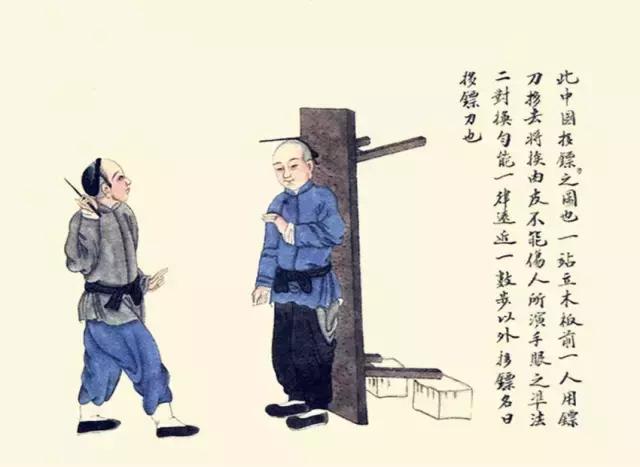 此中国投鏢之圖也一站立木板前一人用鏢
刀摔去將挨由友不能傷人所演手眼之準法
二對換勻能一律遠近一数步以外摔鏢名曰
摔鏢刀也